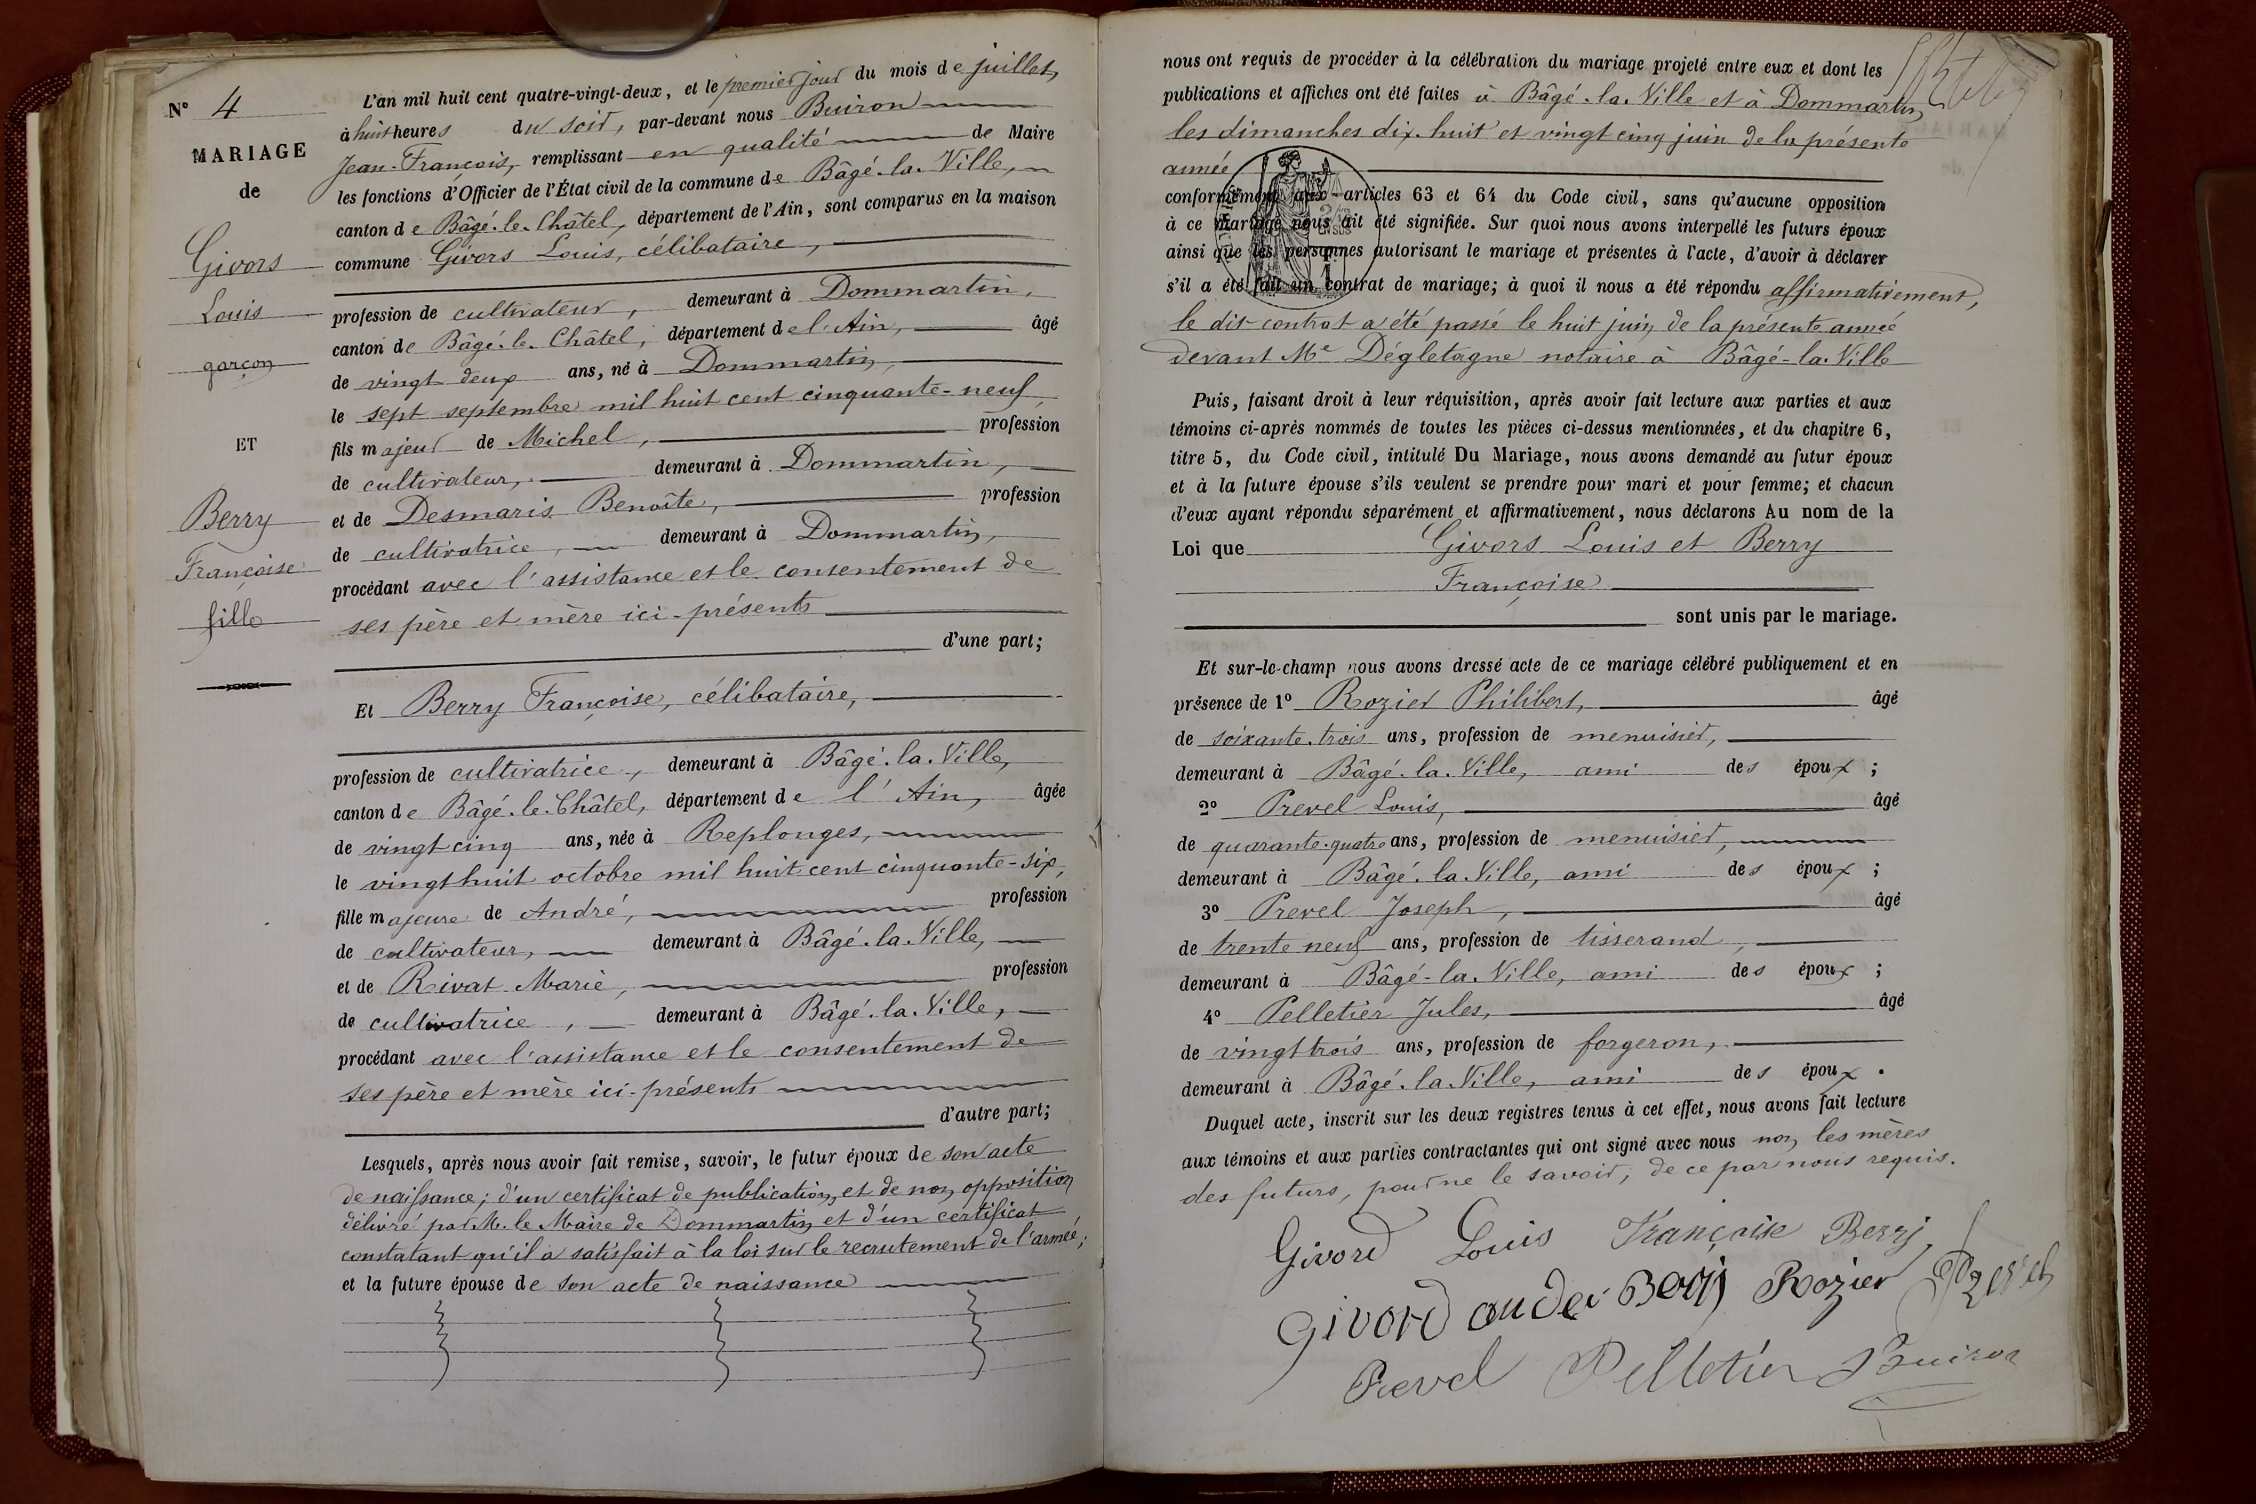 N° 4
MARIAGE
de
Givors
Louis
garçon
ET
Berry
Françoise
fille
L'an mil huit cent quatre-vingt-deux, et le premier jour du mois de juillet,
à huit heures du soir, par-devant nous Buiron
Jean-François, remplissant en qualité de Maire
les fonctions d'Officier de l'État civil de la commune de Bâgé-la-Ville,
canton de Bâgé-le-Châtel, département de l'Ain, sont comparus en la maison
commune Givors Louis, célibataire,
profession de cultivateur, demeurant à Dommartin,
canton de Bâgé-le-Châtel, département de l'Ain, âgé
de vingt deux ans, né à Dommartin,
le sept septembre mil huit cent cinquante-neuf,
fils majeur de Michel, profession
de cultivateur, demeurant à Dommartin,
et de Desmaris Benoîte, profession
de cultivatrice, demeurant à Dommartin,
procédant avec l'assistance et le consentement de
ses père et mère ici-présents
d'une part;
Et Berry Françoise, célibataire,
profession de cultivatrice, demeurant à Bâgé-la-Ville,
canton de Bâgé-le-Châtel, département de l'Ain, âgée
de vingt cinq ans, née à Replonges,
le vingt huit octobre mil huit cent cinquante-six,
fille majeure de André, profession
de cultivateur, demeurant à Bâgé-la-Ville,
et de Rivat Marie, profession
de cultivatrice, demeurant à Bâgé-la-Ville,
procédant avec l'assistance et le consentement de
ses père et mère ici-présents
d'autre part;
Lesquels, après nous avoir fait remise, savoir, le futur époux de son acte
de naissance; d'un certificat de publication, et de non opposition
délivré par M. le Maire de Dommartin et d'un certificat
constatant qu'il a satisfait à la loi sur le recrutement de l'armée;
et la future épouse de son acte de naissance
nous ont requis de procéder à la célébration du mariage projeté entre eux et dont les
publications et affiches ont été faites à Bâgé-la-Ville et à Dommartin,
les dimanches dix-huit et vingt cinq juin de la présente
année
conformément aux articles 63 et 64 du Code civil, sans qu'aucune opposition
à ce mariage nous ait été signifiée. Sur quoi nous avons interpellé les futurs époux
ainsi que les personnes autorisant le mariage et présentes à l'acte, d'avoir à déclarer
s'il a été fait un contrat de mariage; à quoi il nous a été répondu affirmativement,
le dit contrat a été passé le huit juin de la présente année
devant Me Dégletagne notaire à Bâgé-la-Ville
Puis, faisant droit à leur réquisition, après avoir fait lecture aux parties et aux
témoins ci-après nommés de toutes les pièces ci-dessus mentionnées, et du chapitre 6,
titre 5, du Code civil, intitulé Du Mariage, nous avons demandé au futur époux
et à la future épouse s'ils veulent se prendre pour mari et pour femme; et chacun
d'eux ayant répondu séparément et affirmativement, nous déclarons Au nom de la
Loi que Givors Louis et Berry
Françoise
sont unis par le mariage.
Et sur-le-champ nous avons dressé acte de ce mariage célébré publiquement et en
présence de 1° Rozier Philibert, âgé
de soixante-trois ans, profession de menuisier,
demeurant à Bâgé-la-Ville, ami des époux;
2° Prevel Louis, âgé
de quarante-quatre ans, profession de menuisier,
demeurant à Bâgé-la-Ville, ami des époux;
3° Prevel Joseph, âgé
de trente neuf ans, profession de tisserand,
demeurant à Bâgé-la-Ville, ami des époux;
4° Pelletier Jules, âgé
de vingt trois ans, profession de forgeron,
demeurant à Bâgé-la-Ville, ami des époux.
Duquel acte, inscrit sur les deux registres tenus à cet effet, nous avons fait lecture
aux témoins et aux parties contractantes qui ont signé avec nous non, les mères
des futurs, pour ne le savoir, de ce par nous requis.
Givord Louis Françoise Berry
Givord andré Berry Rozier Prevel
Prevel Pelletier Buiron